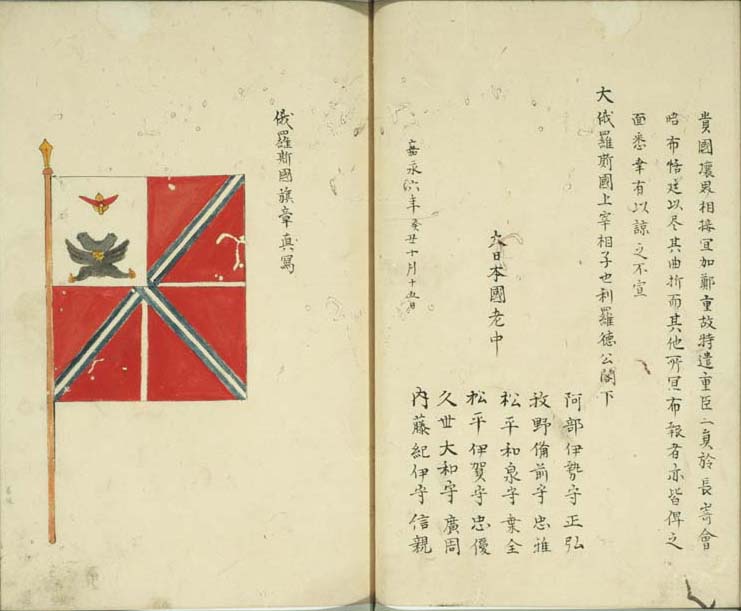 貴國壤界相接宜加鄭重故特遣重臣二員於長寄會
晤布悟廷以尽其曲折而其他所宜布報者亦皆俾之
面悉幸有以諒之不宣
大俄羅斯國上宰相子也利羅德公閣下
大日本國老中
阿部伊勢守正弘
牧野備前守忠雅
松平和泉守乗全
松平伊賀守忠優
久世大和守廣周
内藤紀伊守信親
嘉永六年癸丑十月十五日
俄羅斯國旗章真寫